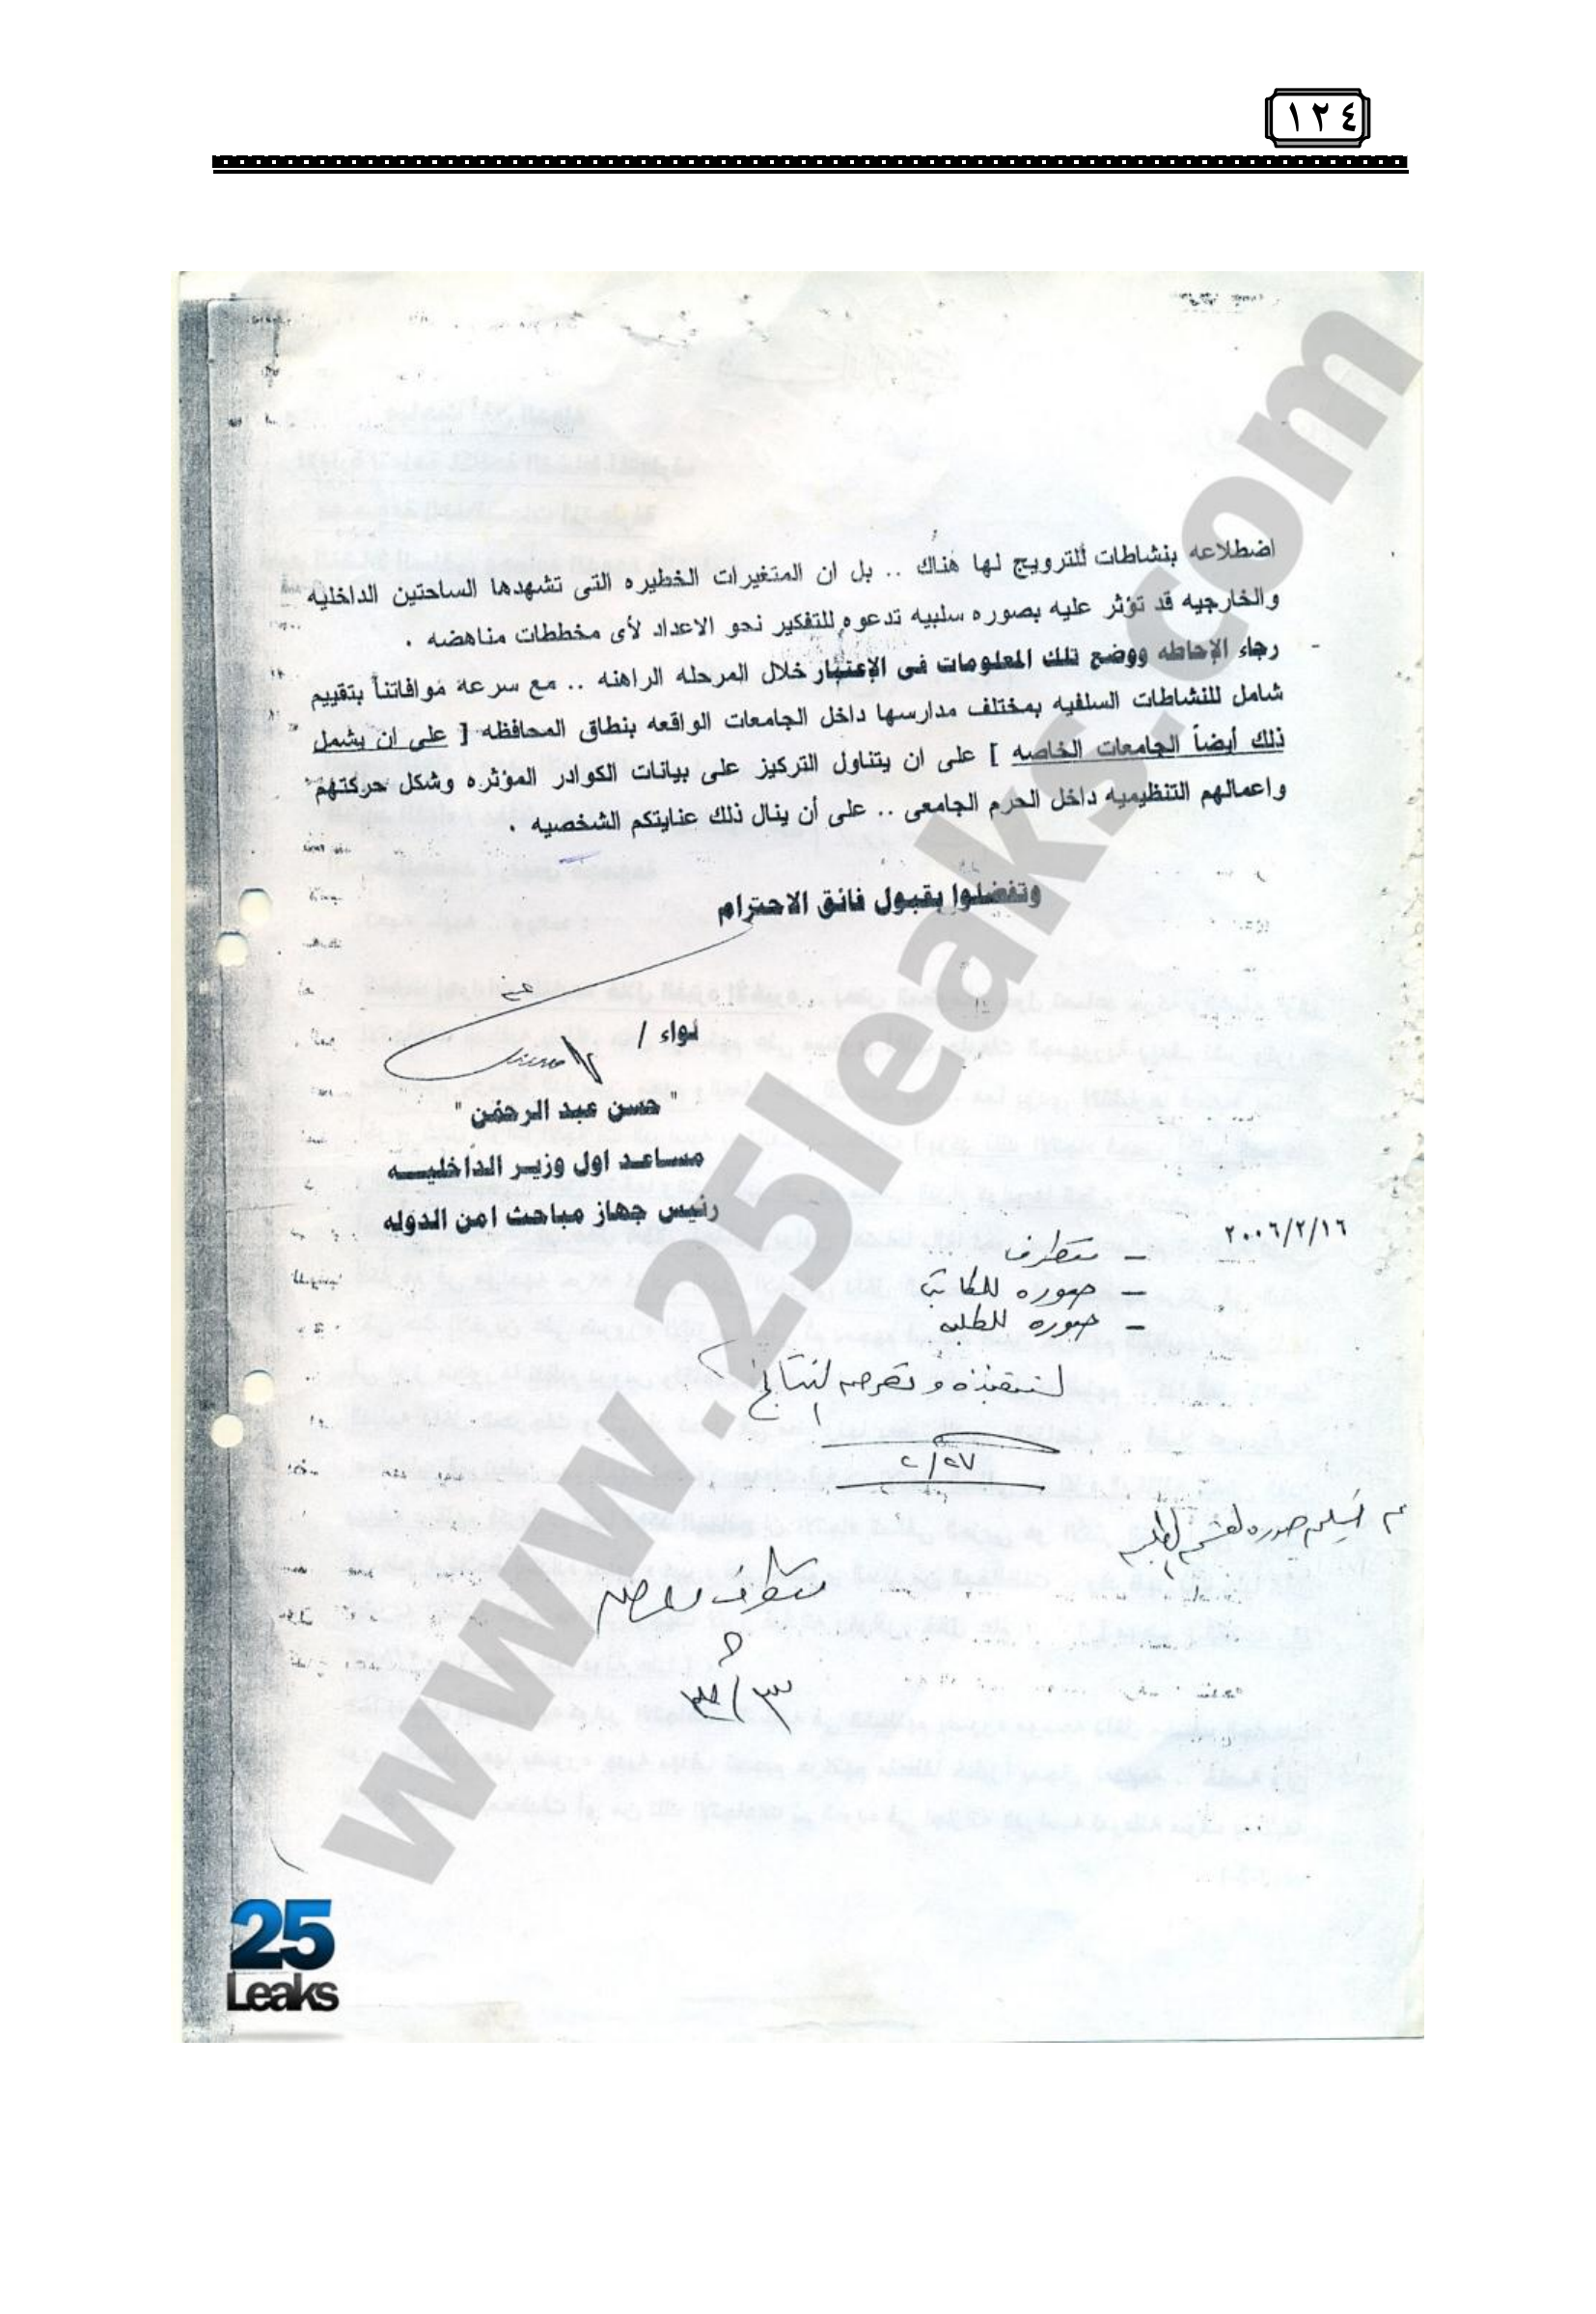 ١٢٤
اضطلاعه بنشاطات للترويج لها هناك .. بل ان المتغيرات الخطيره التى تشهدها الساحتين الداخليه
والخارجيه قد تؤثر عليه بصوره سلبيه تدعوه للتفكير نحو الاعداد لأى مخططات مناهضه .
- رجاء الإحاطه ووضع تلك المعلومات فى الإعتبار خلال المرحله الراهنه .. مع سرعة موافاتنا بتقييم
شامل للنشاطات السلفيه بمختلف مدارسها داخل الجامعات الواقعه بنطاق المحافظه [ على ان يشمل
ذلك أيضاً الجامعات الخاصه ] على ان يتناول التركيز على بيانات الكوادر المؤثره وشكل حركتهم
واعمالهم التنظيميه داخل الحرم الجامعى .. على أن ينال ذلك عنايتكم الشخصيه .
وتفضلوا بقبول فائق الاحترام
لواء /
" حسن عبد الرحمن "
مساعد اول وزير الداخليه
رئيس جهاز مباحث امن الدوله
٢٠٠٦/٢/١٦
- متطرف
- صوره للكاتب
- صوره للطلبه
لتنفيذه و تعرض النتائج
٢/٢٧
www.25leaks.com
25
Leaks